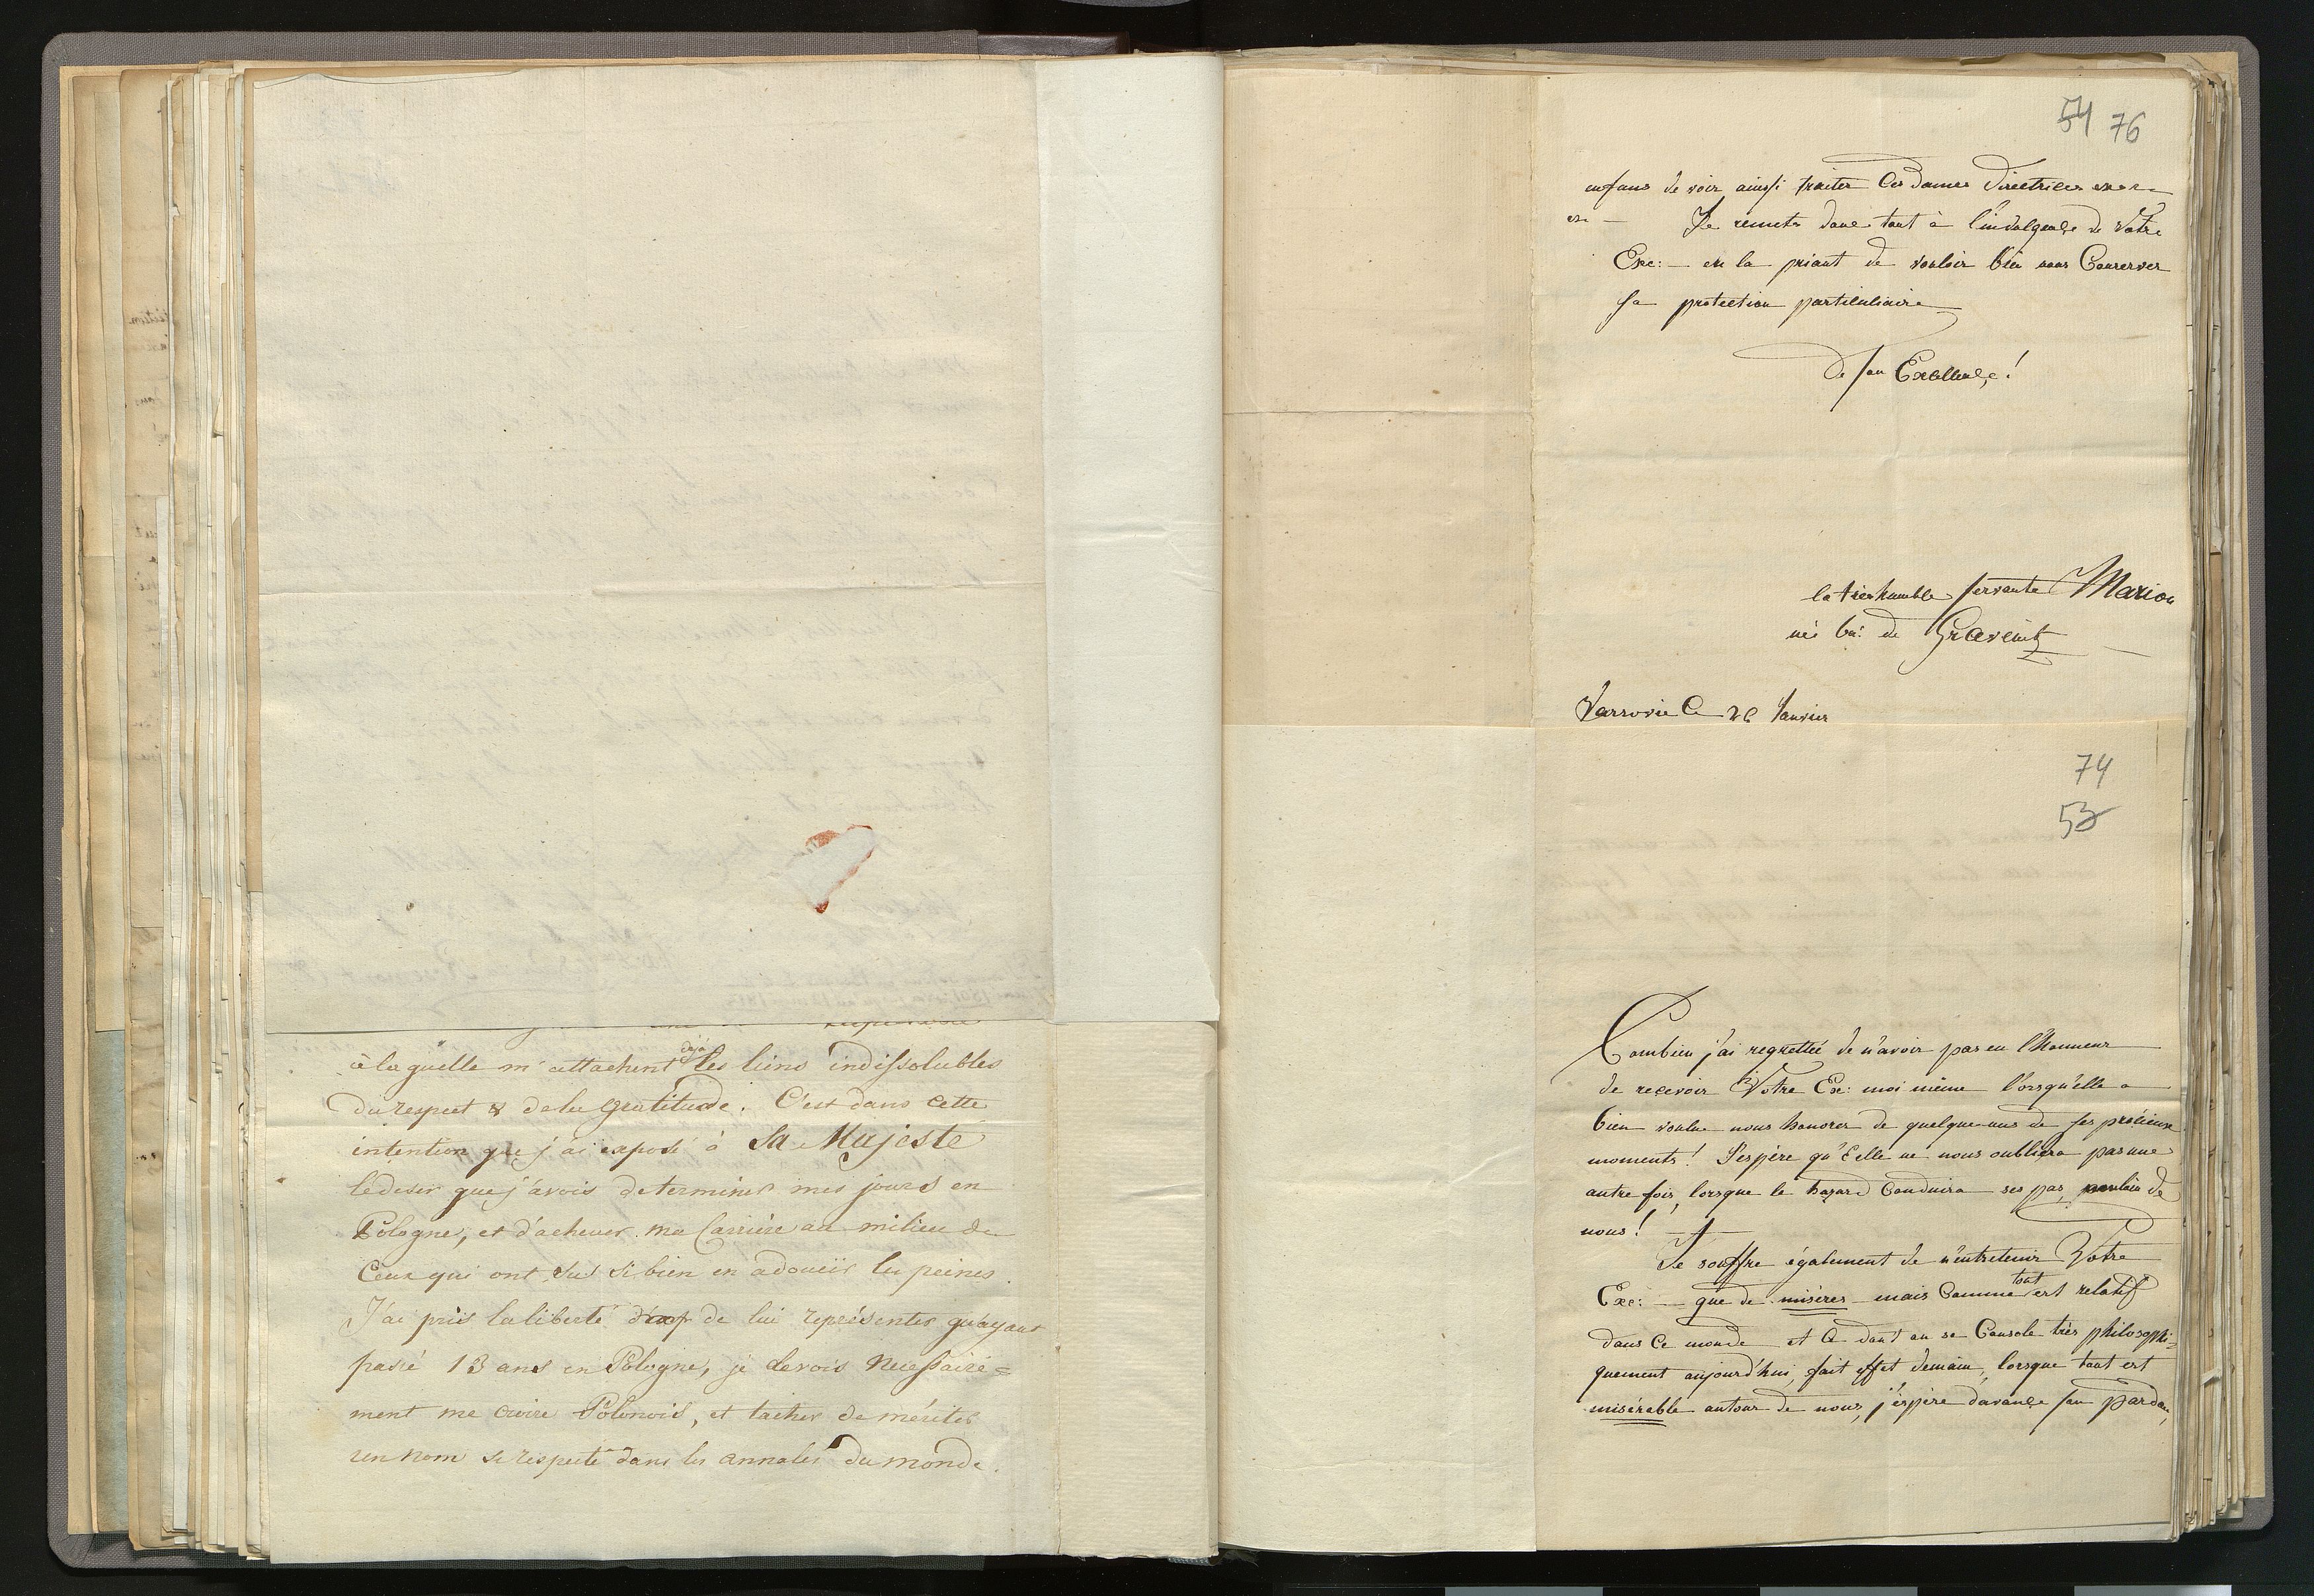 à laquelle m'attachent déjà les liens indissolubles
du respect & de la Gratitude. C'est dans cette
intention que j'ai exposé à Sa Majesté
le desir que j'avois de terminer mes jours en
Pologne, et d'achever ma Carrière au milieu de
Ceux qui ont sus si bien en adoucir les peines.
J'ai pris la liberté de lui représenter qu'ayant
passé 13 ans en Pologne, je devois Necessaire=
ment me croire Polonois, et tacher de mériter
un nom si respecté dans les annales du monde.
54 76
enfans de voir ainsi traiter les Dames Directrices
Je remets donc tout à l'indulgence de Votre
Exc: — en la priant de vouloir bien nous Conserver
sa protection particuliaire
de son Excellence!
la très humble servante Marion
née bn: de Gravenitz
Varsovie le 26 Janvier
74
53
Combien j'ai regrettée de n'avoir pas eu l'Honneur
de recevoir Votre Exc: moi même l'orsqu'elle a
bien voulue nous honorer de quelque-uns de ses précieux
moments! J'espère qu'Elle ne nous oubliera pas une
autre fois, lorsque le hazard Conduira ses pas, pas loin de
nous!
Je souffre également de n'entretenir Votre
Exc: — que de misères — mais Comme tout est relatif
dans Ce monde et Ce dont on se Console très philosophi-
quement aujourd'hui, fait effet demain, lorsque tout est
misérable autour de nous, j'espère d'avance son pardon,